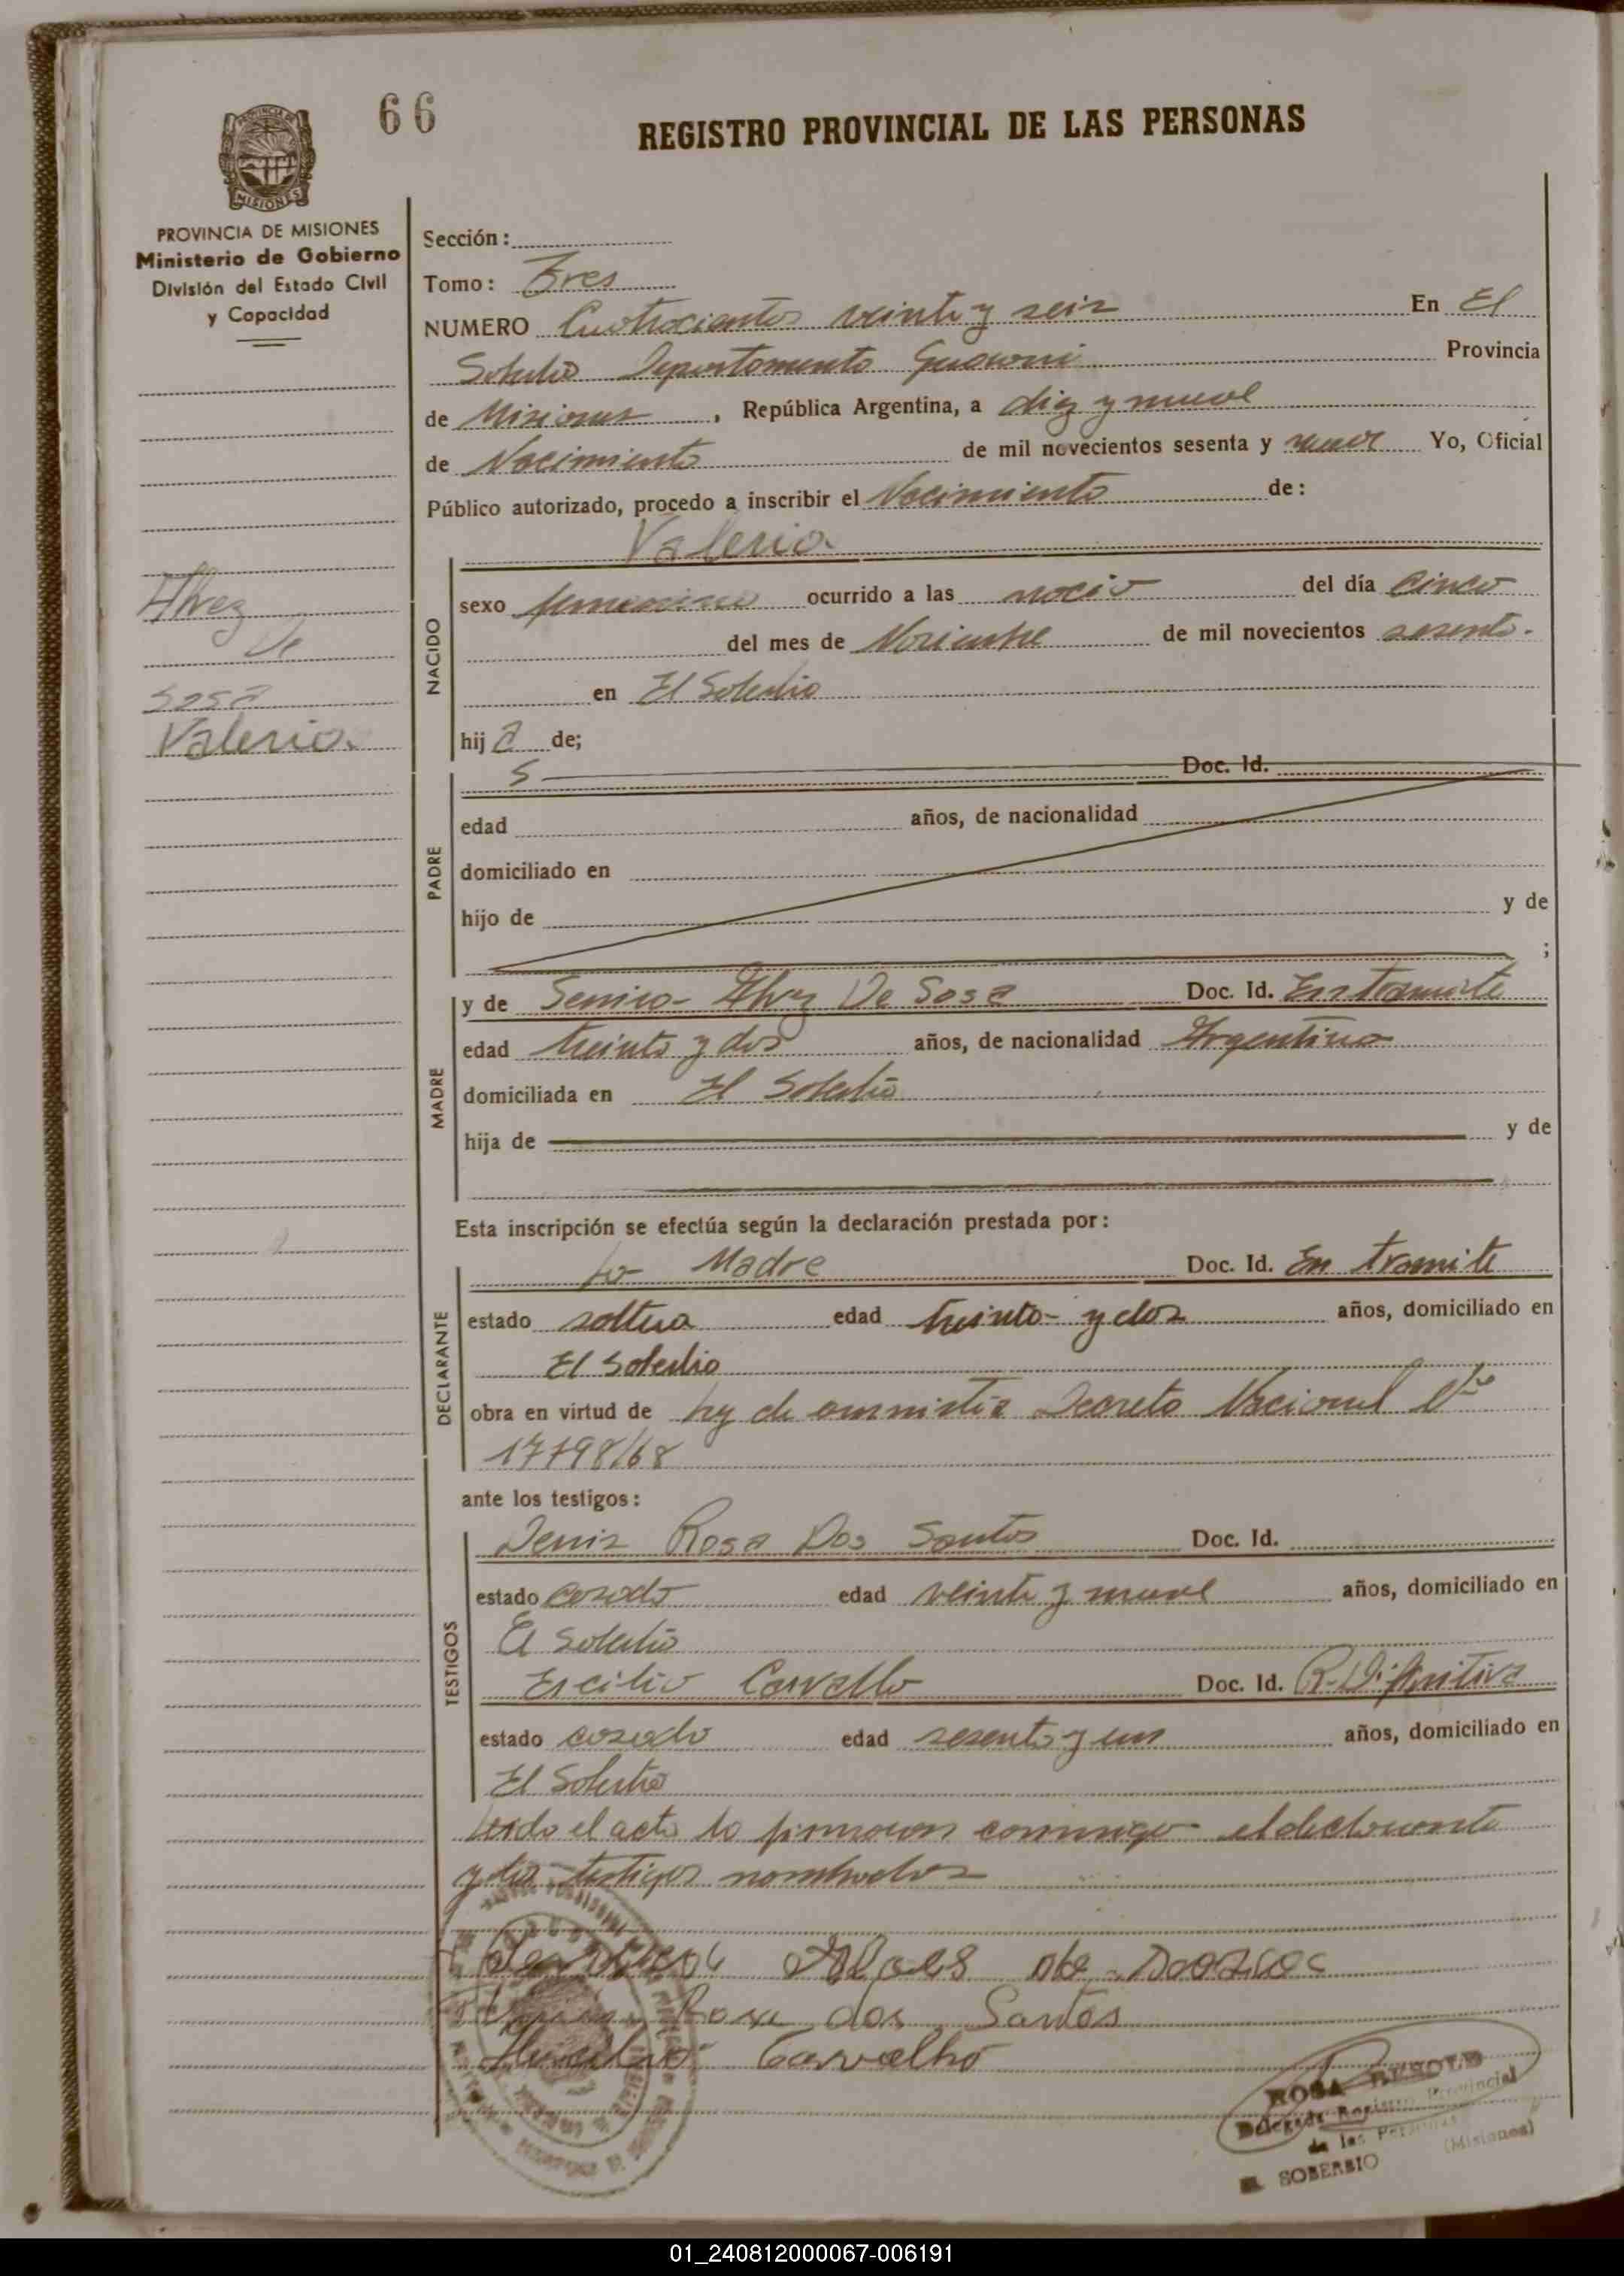 66
REGISTRO PROVINCIAL DE LAS PERSONAS
PROVINCIA DE MISIONES
Ministerio de Gobierno
División del Estado Civil
y Capacidad
Sección:
Tomo: Tres
NUMERO Cuatrocientos veinte y seis En El
Soberbio Departamento Guaraní Provincia
de Misiones, República Argentina, a diez y nueve
de Nacimiento de mil novecientos sesenta y nueve Yo, Oficial
Público autorizado, procedo a inscribir el Nacimiento de:
Valeria
NACIDO
sexo femenino ocurrido a las del día cinco
del mes de Noviembre de mil novecientos sesenta
en El Soberbio
hij a de;
Alvez
De
Sosa
Valeria
PADRE
Doc. Id.
edad años, de nacionalidad
domiciliado en
hijo de y de
;
MADRE
y de Alvez De Sosa Doc. Id. En tramite
edad treinta y dos años, de nacionalidad Argentina
domiciliada en El Soberbio
hija de y de
Esta inscripción se efectúa según la declaración prestada por:
DECLARANTE
La Madre Doc. Id. En tramite
estado soltera edad treinta y dos años, domiciliado en
El Soberbio
obra en virtud de ley de amnistia Decreto Nacional Nº
17798/68
ante los testigos:
TESTIGOS
Denis Rosa Dos Santos Doc. Id.
estado casado edad veinte y nueve años, domiciliado en
El Soberbio
Ercilio Carvallo Doc. Id. R. Difinitiva
estado casado edad sesenta y un años, domiciliado en
El Soberbio
Leido el acta la firmaron conmigo el declarante
y los testigos nombrados
de
Rosa dos Santos
Carvalho
ROSA
Delegada Registro Provincial
de las Personas
EL SOBERBIO (Misiones)
01_240812000067-006191